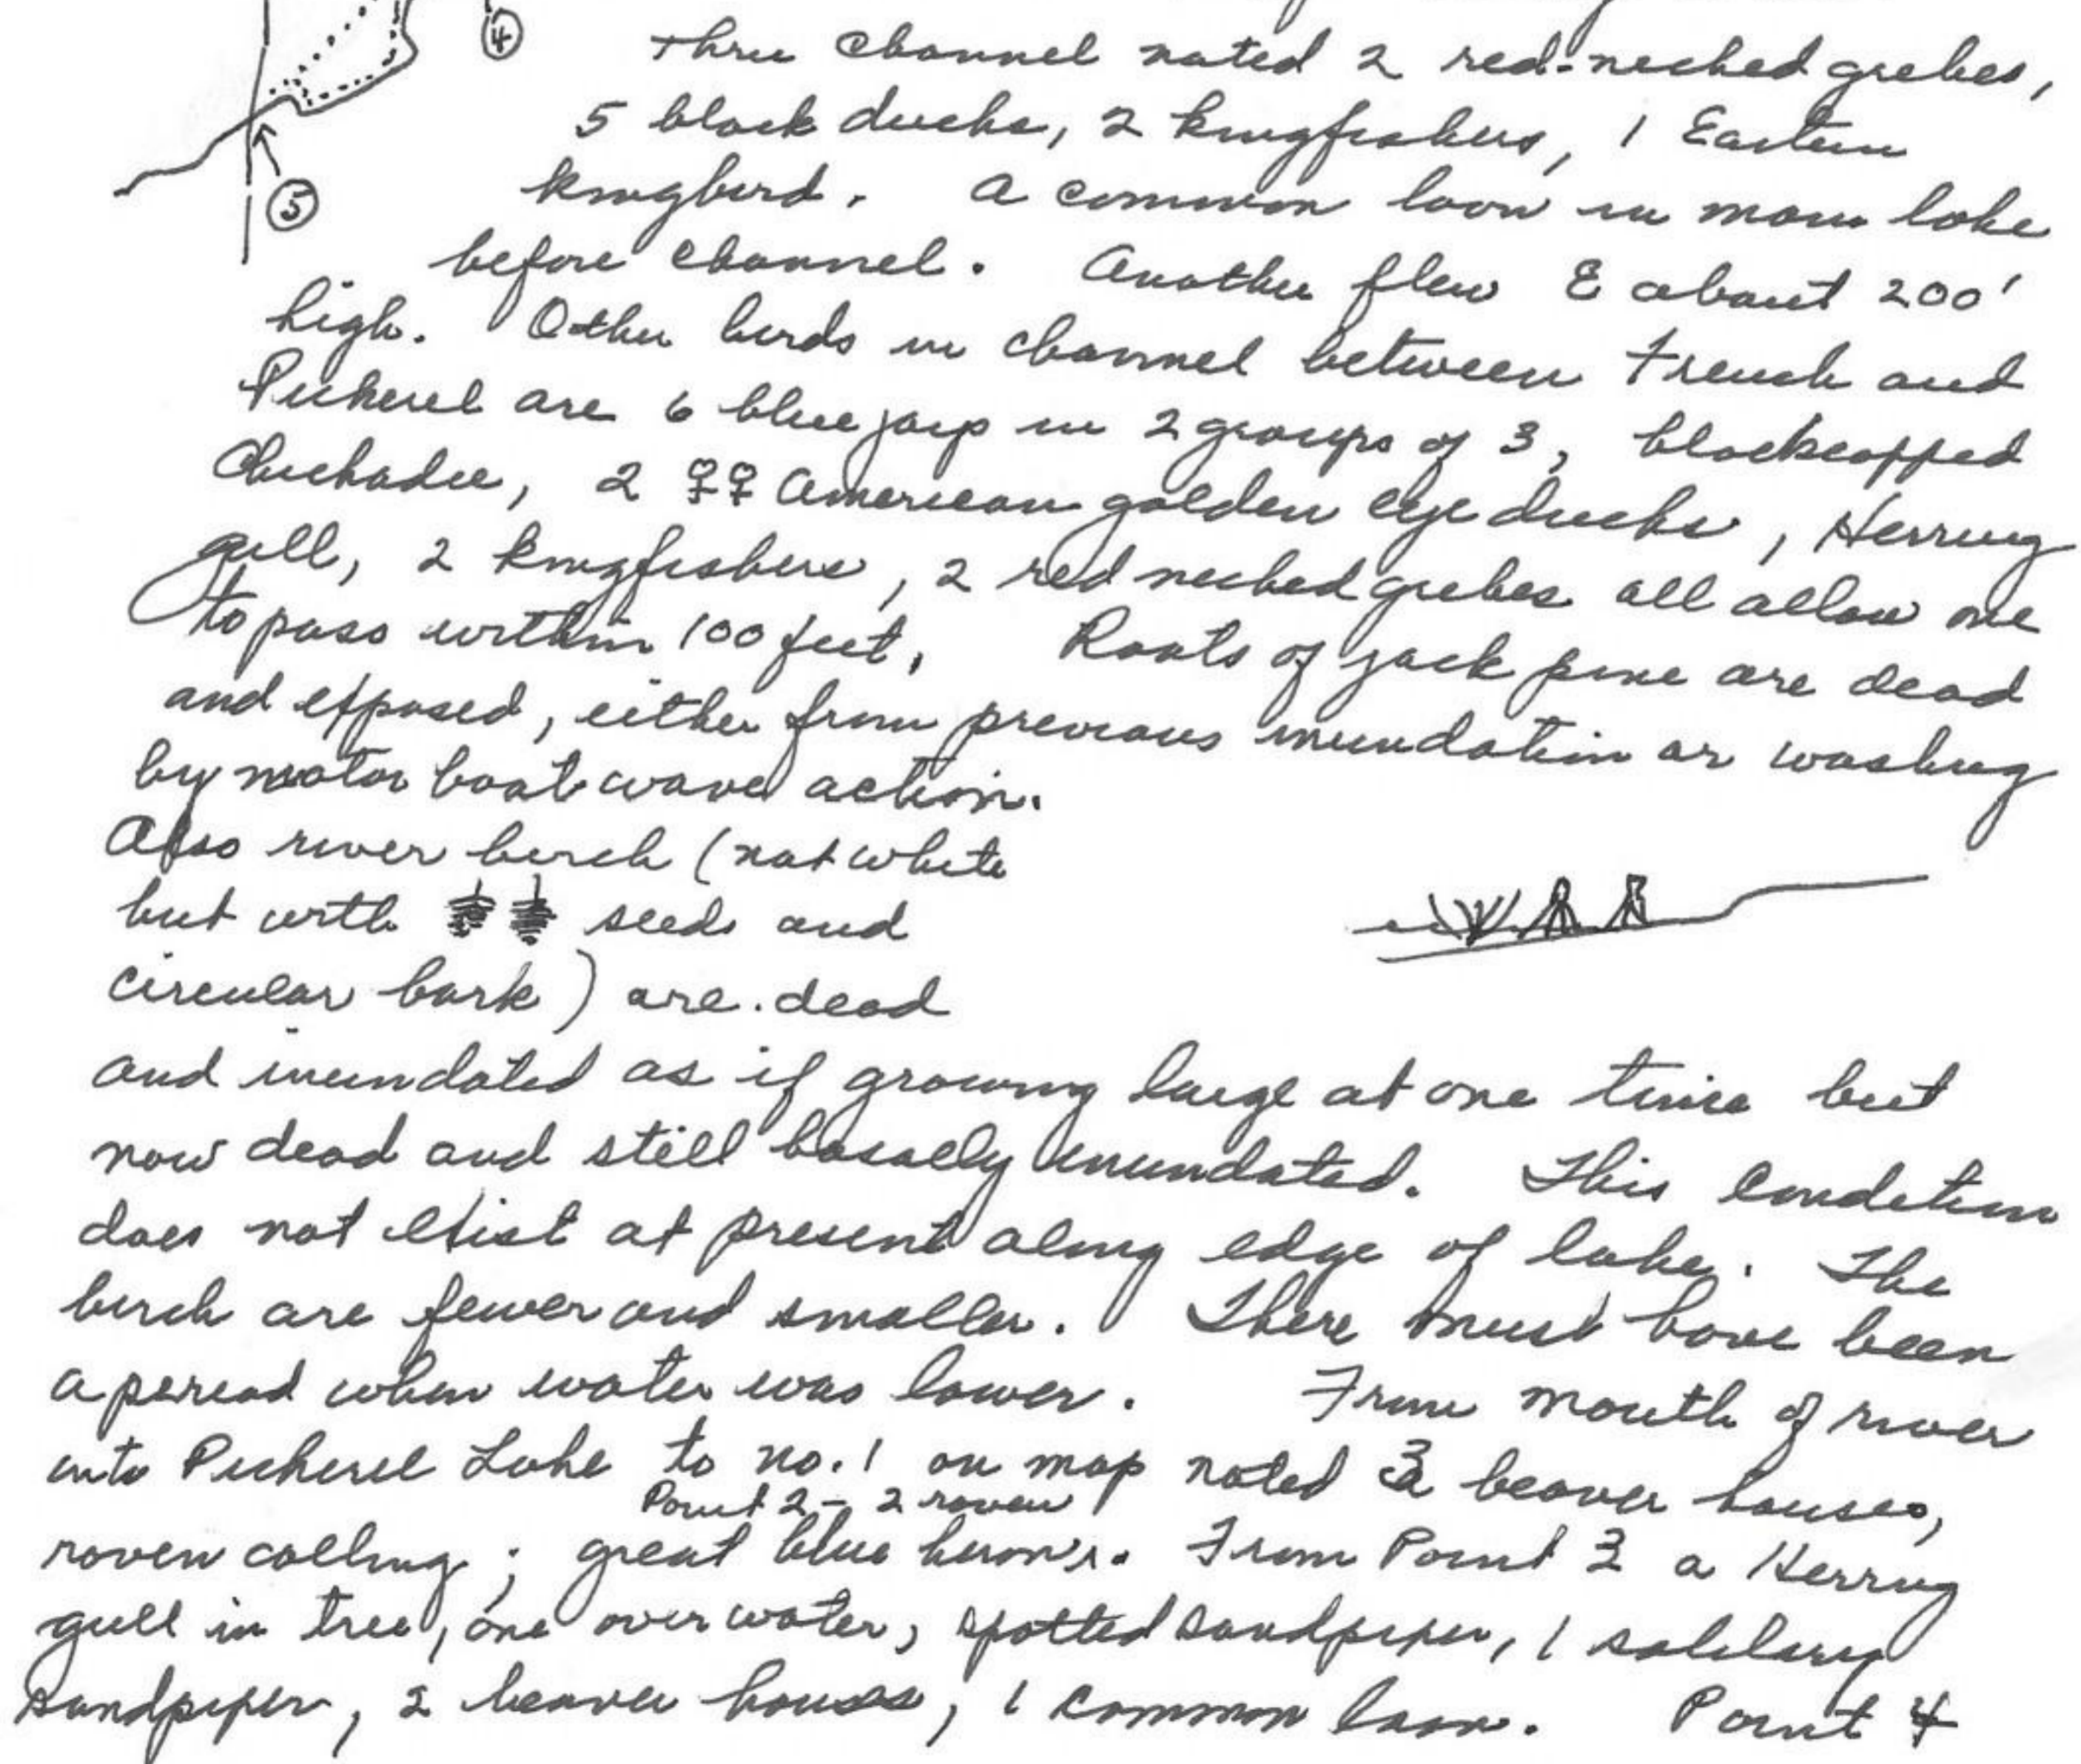 ④
thru channel noted 2 red-necked grebes,
5 black ducks, 2 kingfishers, 1 Eastern
kingbird. A common loon in main lake
⑤
before channel. Another flew E about 200'
high. Other birds in channel between French and
Pickerel are 6 blue jays in 2 groups of 3, blackcapped
Chickadee, 2 ♀♀ American golden eye ducks, Herring
gull, 2 kingfishers, 2 red necked grebes all allow me
to pass within 100 feet. Roots of jack pine are dead
and exposed, either from previous inundation or washing
by motor boat wave action.
Also river birch (not white
but with seeds and
circular bark) are dead
and inundated as if growing large at one time but
now dead and still basally inundated. This condition
does not exist at present along edge of lake. The
birch are fewer and smaller. There must have been
a period when water was lower. From mouth of river
into Pickerel Lake to no. 1 on map noted 3 beaver houses,
Point 2 - 2 raven
raven calling; great blue herons. From Point 3 a Herring
gull in tree, one over water, spotted sandpiper, 1 solitary
sandpiper, 2 beaver houses, 1 common loon. Point 4